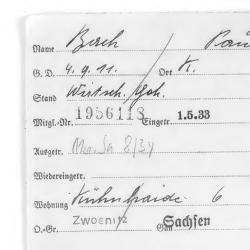 Name Bach Pau
G.D. 4.9.11. Ort K.
Stand Wirtsch./Geh.
Mitgl.-Nr. 1956113 Eingetr. 1.5.33
Ausgetr. Ma. Sa 8/34
Wiedereingetr.
Wohnung Kühnhaide 6
O.-Gr. Zwoenitz Gau Sachsen